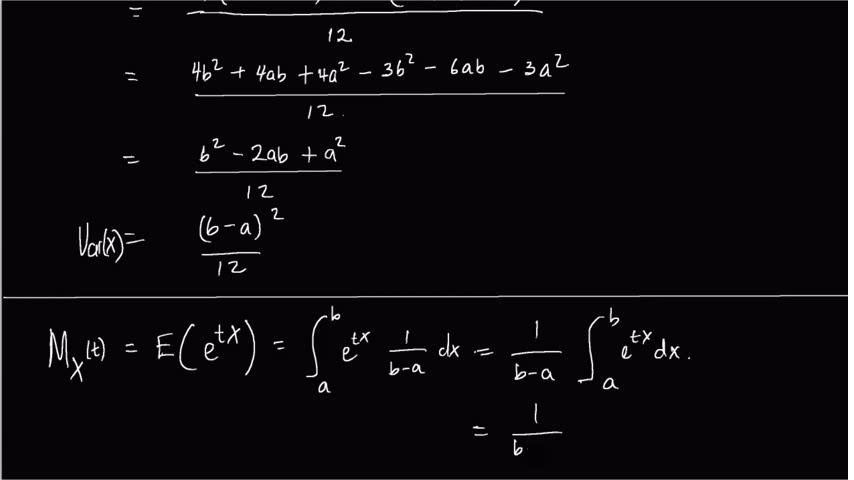 =
12
= 4b² + 4ab + 4a² - 3b² - 6ab - 3a²
12.
= b² - 2ab + a²
12
Var(x) = (b-a)²
12
M_X(t) = E(e^{tX}) = ∫_a^b e^{tx} 1/(b-a) dx = 1/(b-a) ∫_a^b e^{tx} dx.
= 1/b